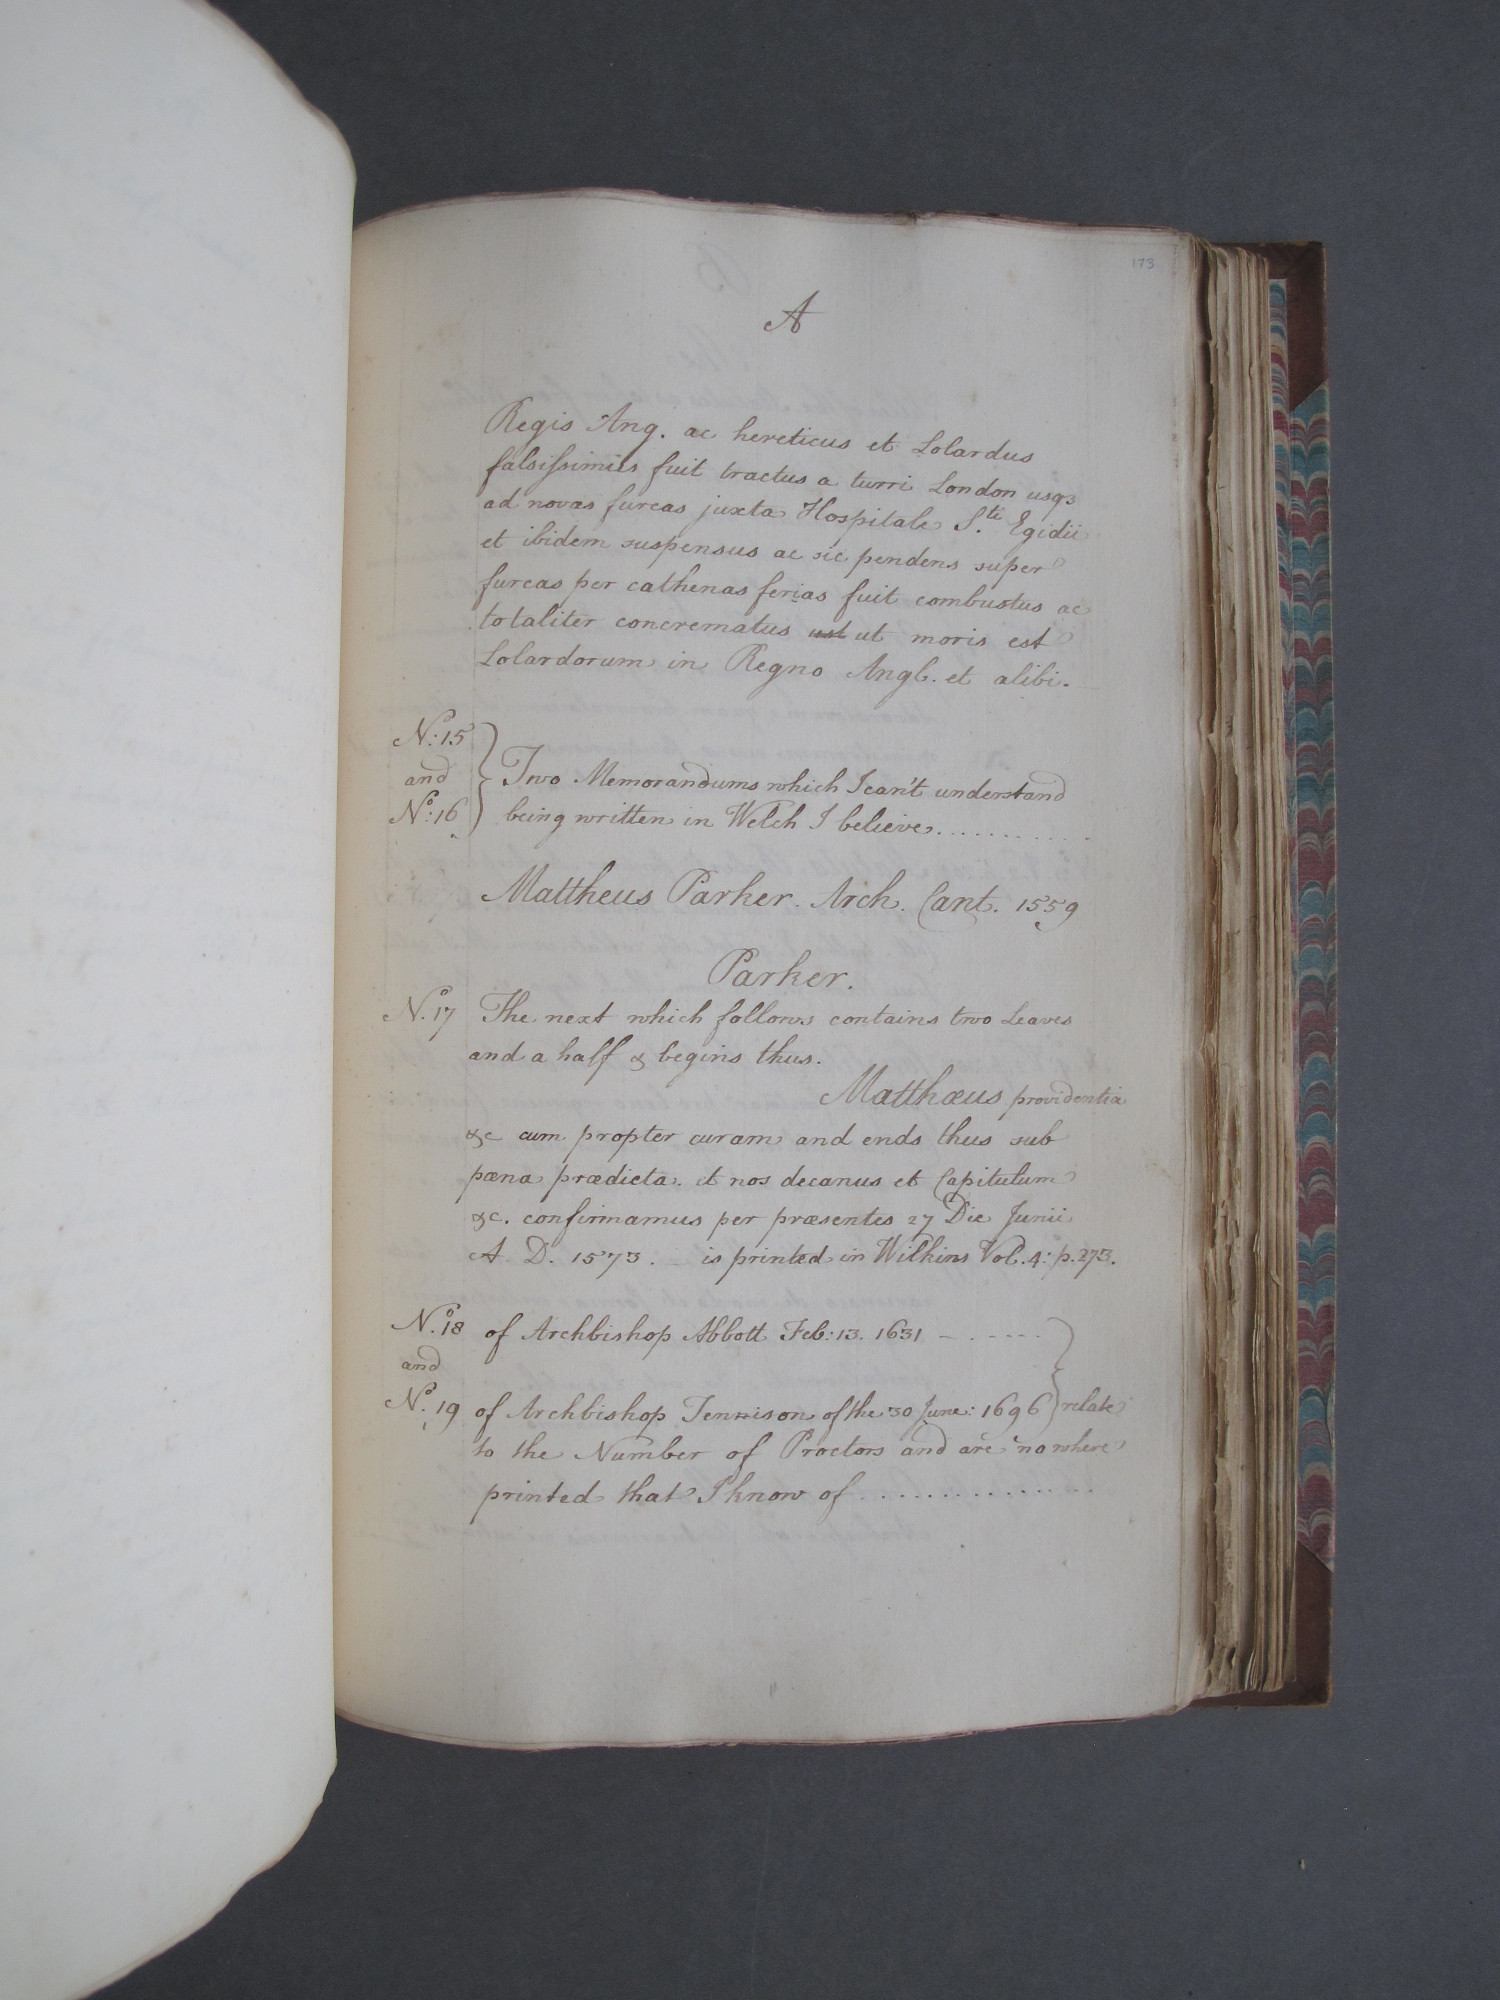 173
A
Regis Ang. ac hereticus et Lolardus
falsissimus fuit tractus a turri London usqʒ
ad novas furcas juxta Hospitale S.ti Egidii
et ibidem suspensus ac sic pendens super
furcas per cathenas ferias fuit combustus ac
totaliter concrematus ust ut moris est
Lolardorum in Regno Angl. et alibi.
No: 15
and
No: 16
Two Memorandums which I can't understand
being written in Welch I believe............
Mattheus Parker. Arch. Cant. 1559
Parker.
No. 17 The next which follows contains two Leaves
and a half & begins thus.
Matthæus providentia
&c cum propter curam and ends thus sub
pœna prædicta. et nos decanus et Capitulum
&c. confirmamus per præsentes 27 Die Junii
A. D. 1573. is printed in Wilkins Vol. 4: p. 273.
No. 18 of Archbishop Abbott Feb: 13. 1631 - . - - - -
and
No. 19 of Archbishop Tennison of the 30 June: 1696 relate
to the Number of Proctors and are no where
printed that I know of ..............